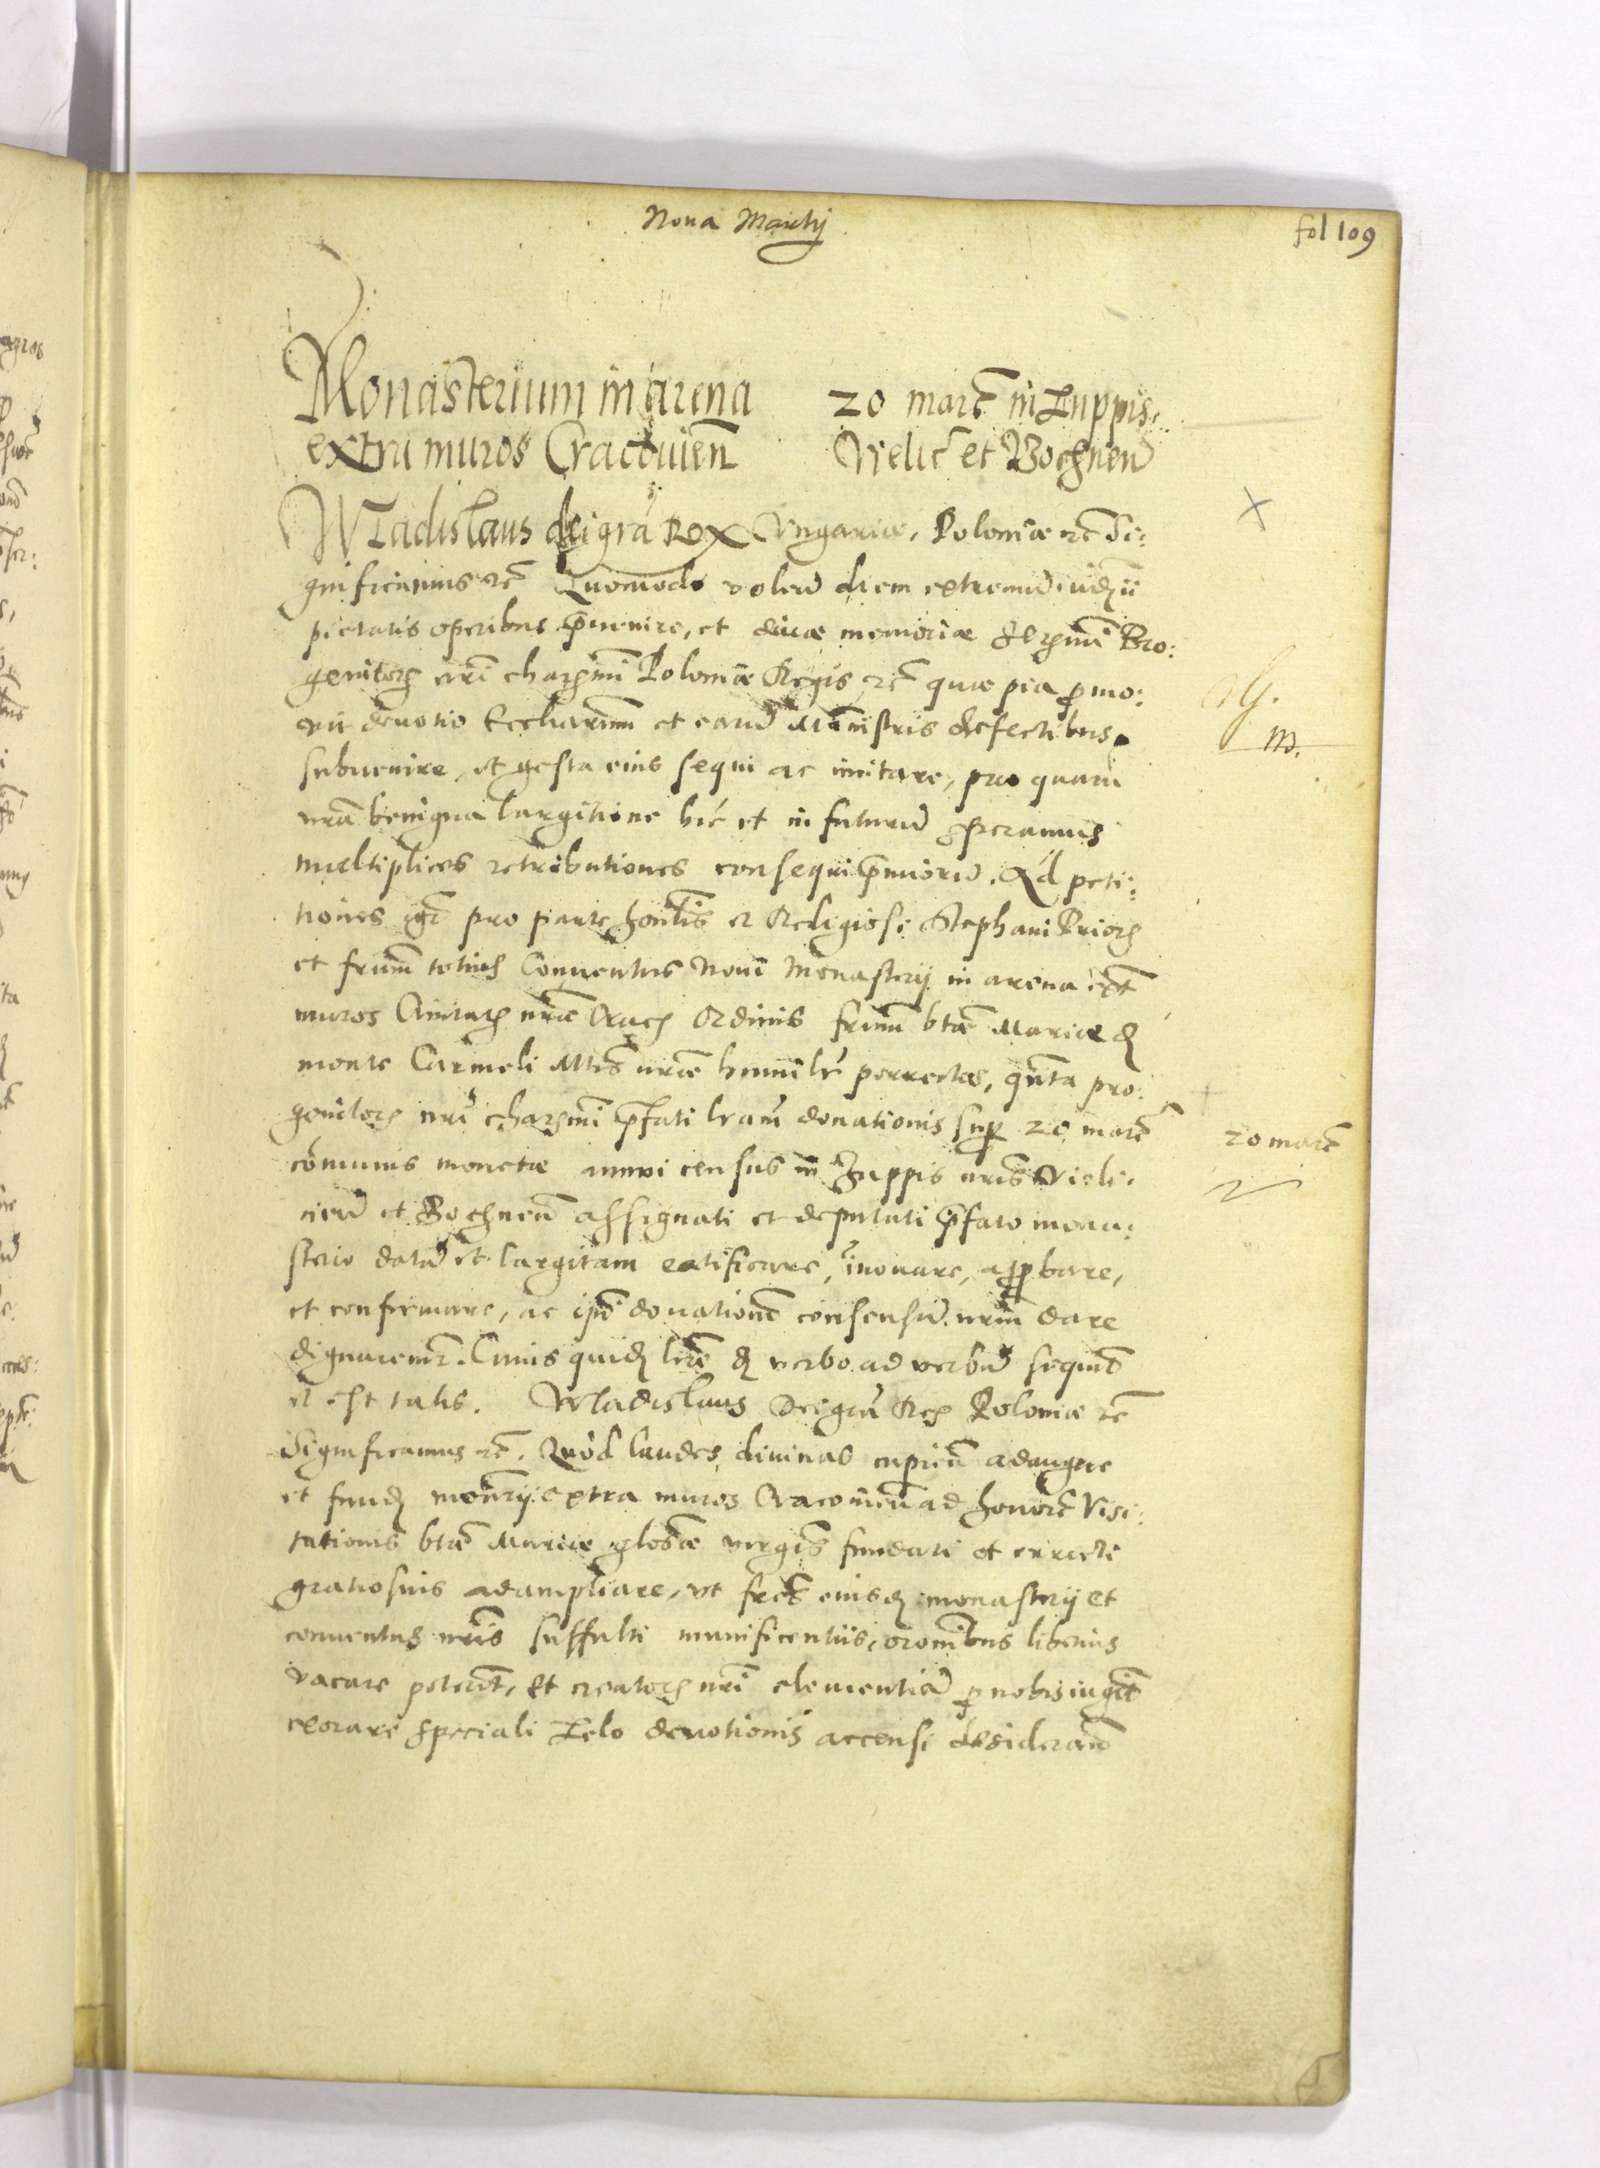 Nona Martij
fol 109
Monasterium in arena 20 marc in Zuppis
extra muros Cracouien Velic et Bochnen
Wladislaus dei gra Rex Vngariae, Poloniae etc Si:
gnificamus etc Quomodo volen diem extremu
pietatis operibus pruenire, et diuae memoriae Pro:
genitoris nri charismi Poloniae Regis, etc quae pia promo:
uit deuotio Eccliarum et eand Ministris defectibus
subuenire, et gesta eius sequi ac imitare, pro quam
nram benigna largitione hic et in futuru speramus
multiplices retributiones consequi pmioru. Ad peti:
tiones pro parte et Religiosi Stephani Prioris
et frum totius Conuentus Noui Monasterij in arena ext
muros Ciuitatis nrae Crac Ordinis frum btae Mariae d
monte Carmeli Mti nrae humilr porrectas, qnta pro:
genitoris nri charismi pfati lram donationis sup 20 marc
20 marc
comunis monetae annui census in Zuppis nris Vieli:
cien et Bochnen assignati et deputati pfato mona:
sterio data et largitam ratificare, inouare, approbare,
et confirmare, ac ipi donationi consensu nrum dare
dignaremr. Cuius quid lrae d verbo ad verbu sequit
et est talis. Wladislaus Dei gra Rex Poloniae etc
Significamus etc. Quod laudes diuinas cupien adaugere
et fund monrij extra muros Cracouien ad honore Visi:
tationis btae Mariae glosae virgis fundati et erecti
gratiosius adampliare, vt fres eiusd monasterij et
conuentus nris suffulti munificentiis, oronibus liberius
vacare poterit, et creatoris nri clementia p nobis iugit
exorare speciali Zelo deuotionis accensi desideran